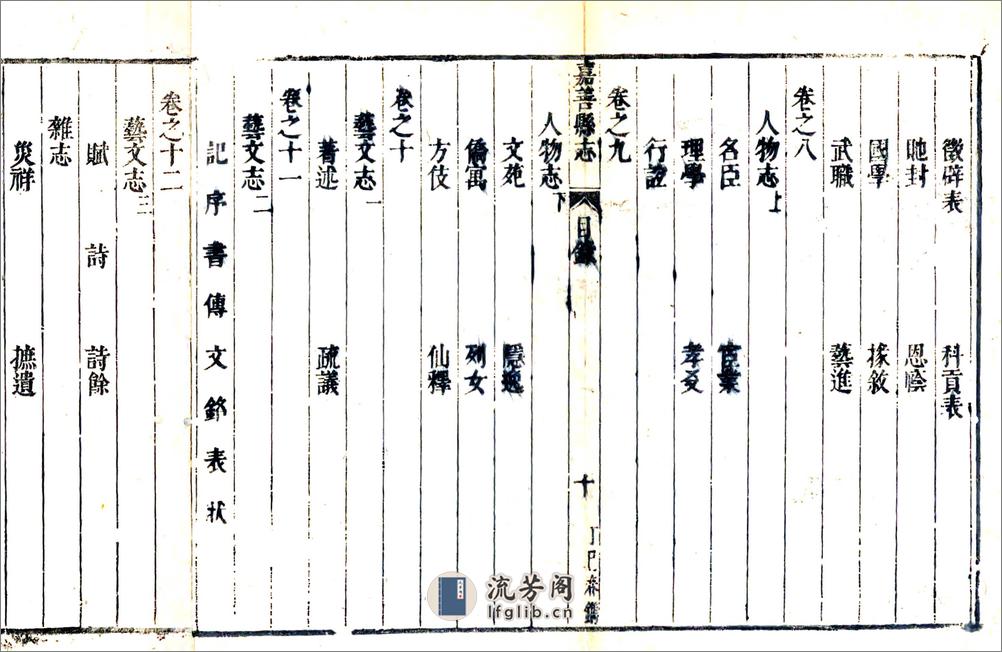 徵辟表　科貢表
貤封　恩廕
國學　掾敘
武職　藝進
卷之八
人物志上
名臣　宦業
理學　孝友
行誼
卷之九
嘉善縣志　目錄　十　丁巳春鐫
人物志下
文苑　隱逸
僑寓　列女
方伎　仙釋
卷之十
藝文志一
著述　疏議
卷之十一
藝文志二
記　序　書　傳　文　銘　表　狀
卷之十二
藝文志三
賦　詩　詩餘
雜志
災祥　摭遺
流芳阁
lfglib.cn